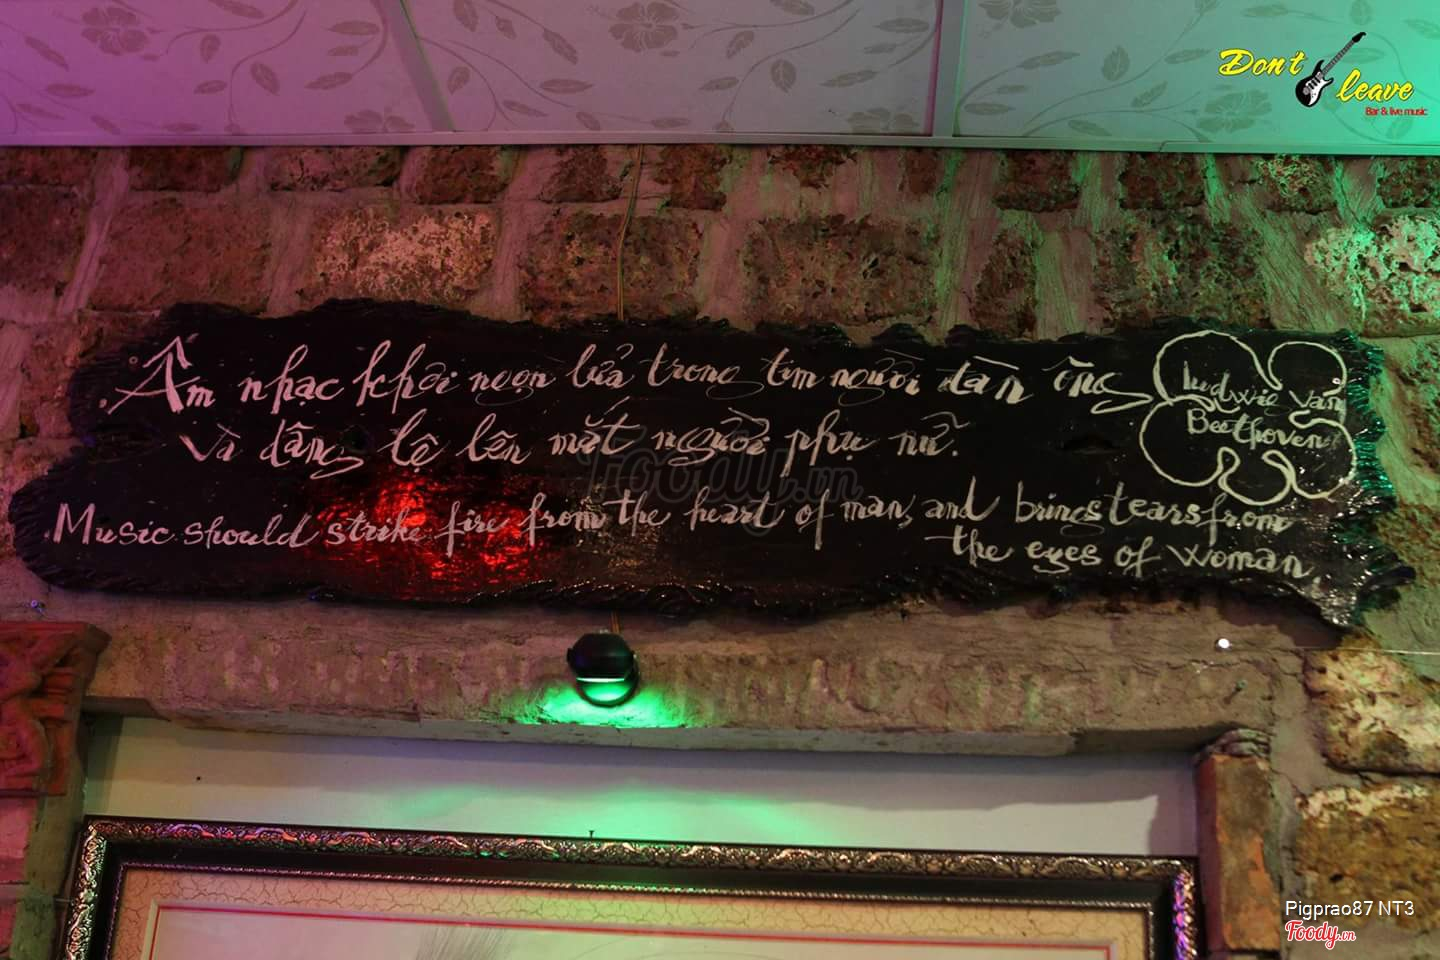 Don't leave
Bar & live music
Âm nhạc khơi ngọn lửa trong tim người đàn ông
và dâng lệ lên mắt người phụ nữ.
Ludwig Van
Beethoven
Music should strike fire from the heart of man, and brings tears from
the eyes of woman.
Foody.vn
Pigprao87 NT3
Foody.vn